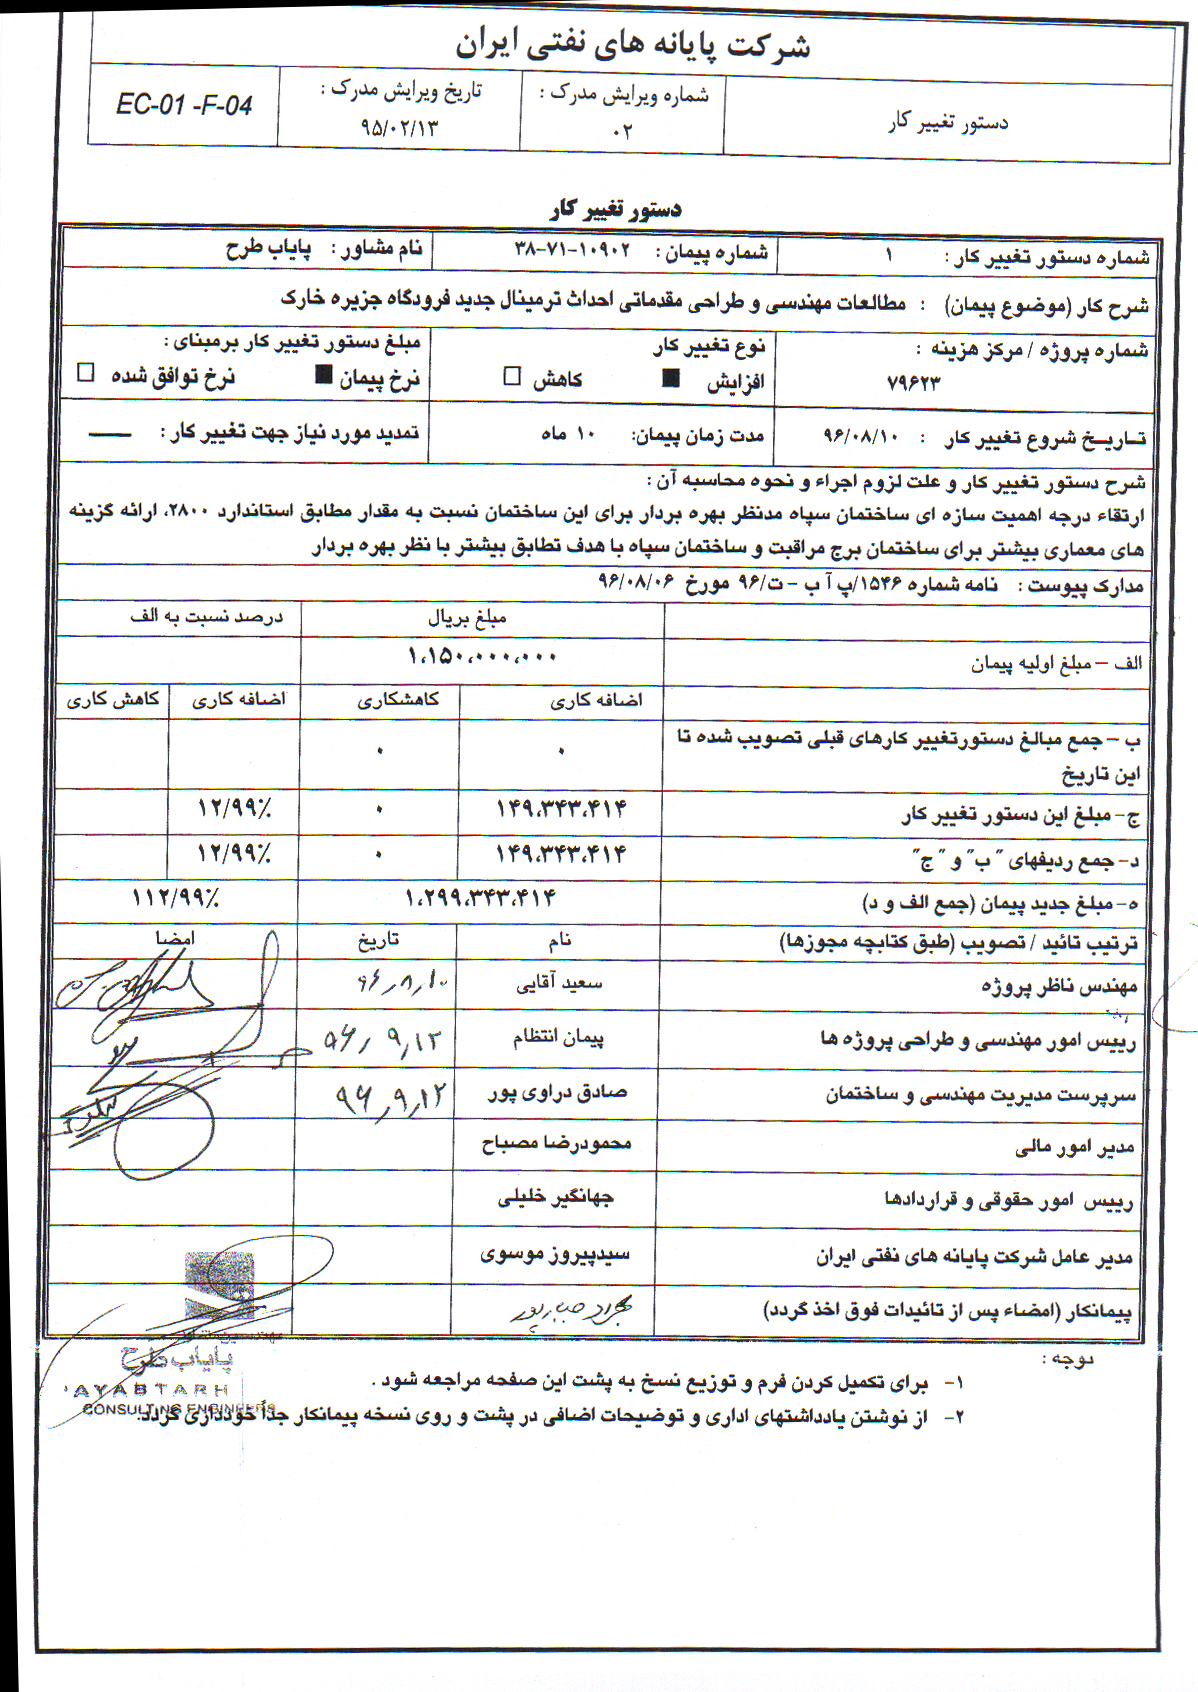 شرکت پایانه های نفتی ایران
دستور تغییر کار
شماره ویرایش مدرک :
۰۲
تاریخ ویرایش مدرک :
۹۵/۰۲/۱۳
EC-01 -F-04
دستور تغییر کار
شماره دستور تغییر کار : ۱
شماره پیمان : ۱۰۹۰۲-۷۱-۳۸
نام مشاور : پایاب طرح
شرح کار (موضوع پیمان) : مطالعات مهندسی و طراحی مقدماتی احداث ترمینال جدید فرودگاه جزیره خارک
شماره پروژه / مرکز هزینه :
۷۹۶۲۳
نوع تغییر کار
افزایش ■ کاهش □
مبلغ دستور تغییر کار برمبنای :
نرخ پیمان ■ نرخ توافق شده □
تـاریـخ شروع تغییر کار : ۹۶/۰۸/۱۰
مدت زمان پیمان: ۱۰ ماه
تمدید مورد نیاز جهت تغییر کار : ــــ
شرح دستور تغییر کار و علت لزوم اجراء و نحوه محاسبه آن :
ارتقاء درجه اهمیت سازه ای ساختمان سپاه مدنظر بهره بردار برای این ساختمان نسبت به مقدار مطابق استاندارد ۲۸۰۰، ارائه گزینه
های معماری بیشتر برای ساختمان برج مراقبت و ساختمان سپاه با هدف تطابق بیشتر با نظر بهره بردار
مدارک پیوست : نامه شماره ۱۵۴۶/پ آ ب – ت/۹۶ مورخ ۹۶/۰۸/۰۶
مبلغ بریال درصد نسبت به الف
الف – مبلغ اولیه پیمان ۱،۱۵۰،۰۰۰،۰۰۰
اضافه کاری کاهشکاری اضافه کاری کاهش کاری
ب – جمع مبالغ دستورتغییر کارهای قبلی تصویب شده تا ۰ ۰
این تاریخ
ج- مبلغ این دستور تغییر کار ۱۴۹،۳۴۳،۴۱۴ ۰ ۱۲/۹۹٪
د- جمع ردیفهای " ب" و " ج" ۱۴۹،۳۴۳،۴۱۴ ۰ ۱۲/۹۹٪
ه- مبلغ جدید پیمان (جمع الف و د) ۱،۲۹۹،۳۴۳،۴۱۴ ۱۱۲/۹۹٪
ترتیب تائید / تصویب (طبق کتابچه مجوزها) نام تاریخ امضا
مهندس ناظر پروژه سعید آقایی ۹۶٫۸٫۱۰
رییس امور مهندسی و طراحی پروژه ها پیمان انتظام ۹۶٫۹٫۱۲
سرپرست مدیریت مهندسی و ساختمان صادق دراوی پور ۹۶٫۹٫۱۲
مدیر امور مالی محمودرضا مصباح
رییس امور حقوقی و قراردادها جهانگیر خلیلی
مدیر عامل شرکت پایانه های نفتی ایران سیدپیروز موسوی
پیمانکار (امضاء پس از تائیدات فوق اخذ گردد)
پایاب طرح
AYABTARH
CONSULTING ENGINEERS
توجه :
۱- برای تکمیل کردن فرم و توزیع نسخ به پشت این صفحه مراجعه شود .
۲- از نوشتن یادداشتهای اداری و توضیحات اضافی در پشت و روی نسخه پیمانکار جداً خودداری گردد.